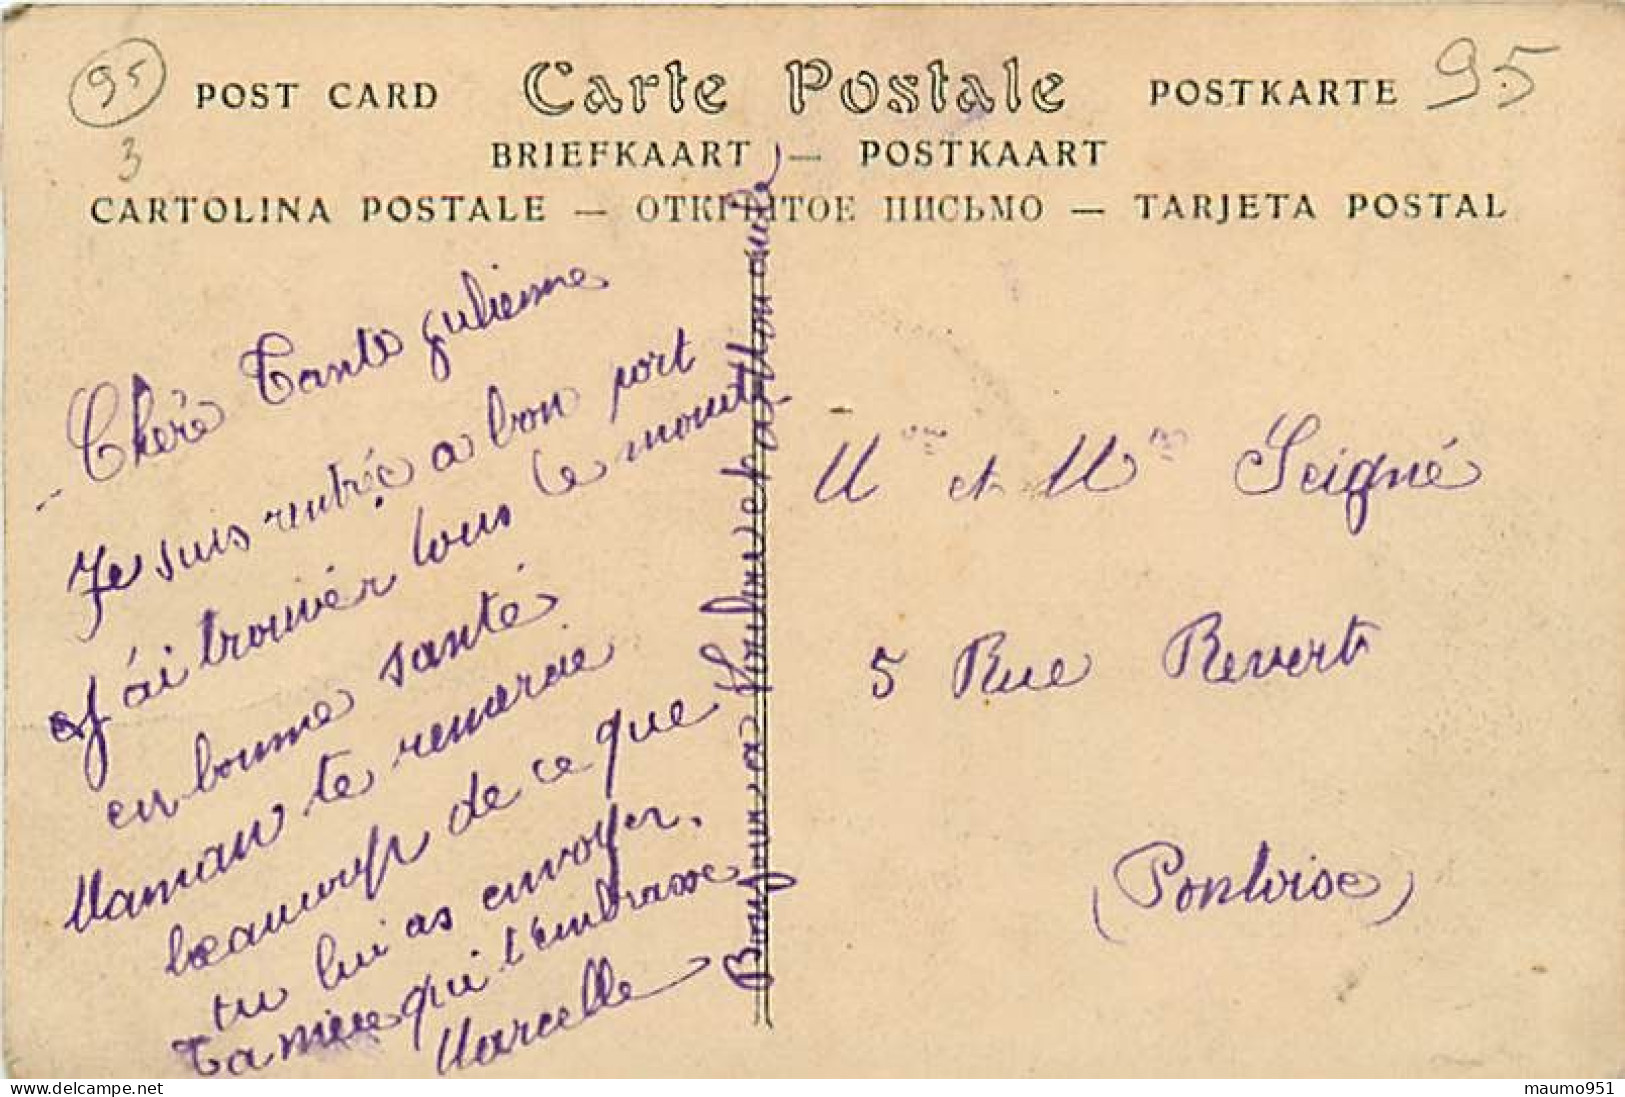 95
3
POST CARD
Carte Postale
POSTKARTE
95
BRIEFKAART — POSTKAART
CARTOLINA POSTALE — ОТКРЫТОЕ ПИСЬМО — TARJETA POSTAL
Chère Tante Julienne
Je suis rentrée a bon port
J'ai trouvér tous le monde
en bonne santé
Maman te remercie
beaucoup de ce que
tu lui as envoyer.
Ta nièce qui t'embrasse
Marcelle
Bonjour a et a Mon oncle
Mr et Mme Seigné
5 Rue Revert
(Pontoise)
maumo951